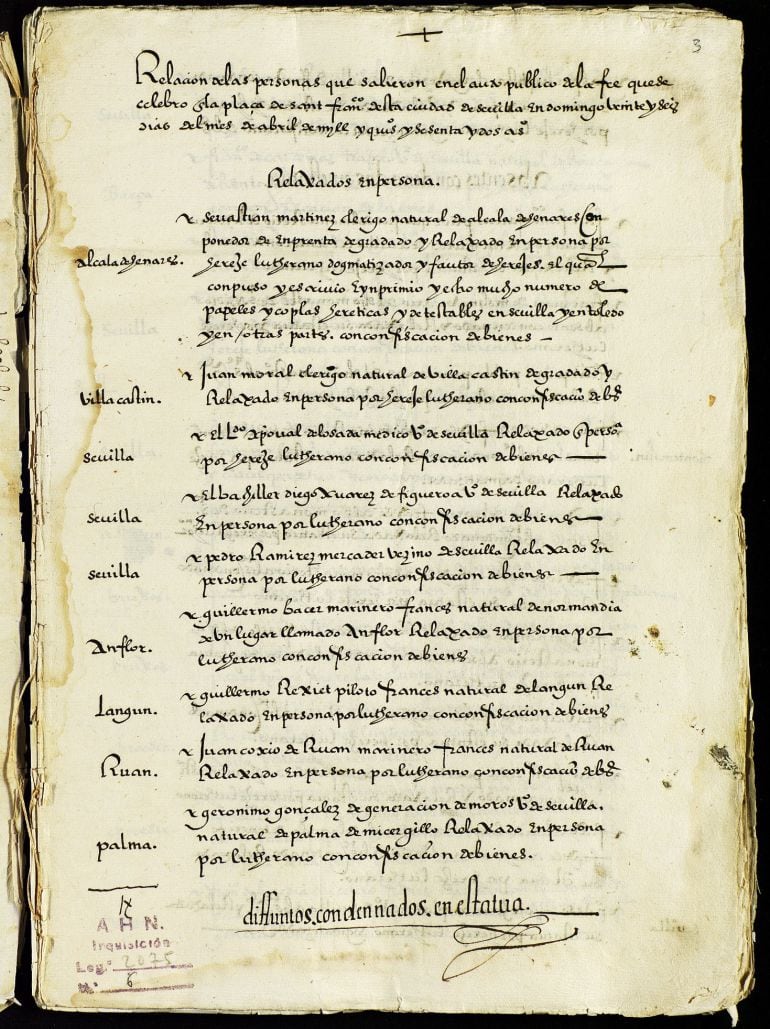 +
3
Relacion de las personas que salieron en el auto publico de la fee que se
celebro en la plaça de sant franco desta ciudad de sevilla en domingo veinte y seis
dias del mes de abril de myll y quis y sesenta y dos as
Relaxados en persona.
r sevastian martinez clerigo natural de alcala de henares con
ponedor de enprenta degradado y Relaxado en persona por
alcala de henares. hereje lutherano dogmatizador y fautor de herejes. el qual
conpuso y escrivio e ynprimio y echo mucho numero de
papeles y coplas hereticas y detestables en sevilla y en toledo
y en otras partes. con confiscacion de bienes —
r Juan moral clerigo natural de villa castin degradado y
villa castin. Relaxado en persona por hereje lutherano con confiscacion de bs
r El Ldo xpoval de losada medico vo de sevilla Relaxado en persoa
sevilla por hereje lutherano con confiscacion de bienes —
r El bachiller diego xuarez de figueroa vo de sevilla Relaxado
sevilla en persona por lutherano con confiscacion de bienes
r pedro Ramirez mercader vezino de sevilla Relaxado en
sevilla persona por lutherano con confiscacion de bienes —
r guillermo bacer marinero frances natural de normandia
de un lugar llamado Anflor Relaxado en persona por
Anflor. lutherano con confiscacion de bienes
r guillermo Rexiet piloto frances natural de langun Re
Langun. laxado en persona por lutherano con confiscacion de bienes
r Juan coxio de Ruan marinero frances natural de Ruan
Ruan. Relaxado en persona por lutherano con confiscacion de bs
r geronimo gonçalez de generacion de moros vo de sevilla.
palma. natural de palma de micer gillo Relaxado en persona
por lutherano con confiscacion de bienes.
IX
diffuntos. condennados. en estatua.
A H N.
Inquisición
Leg.º 2075
N.º 6